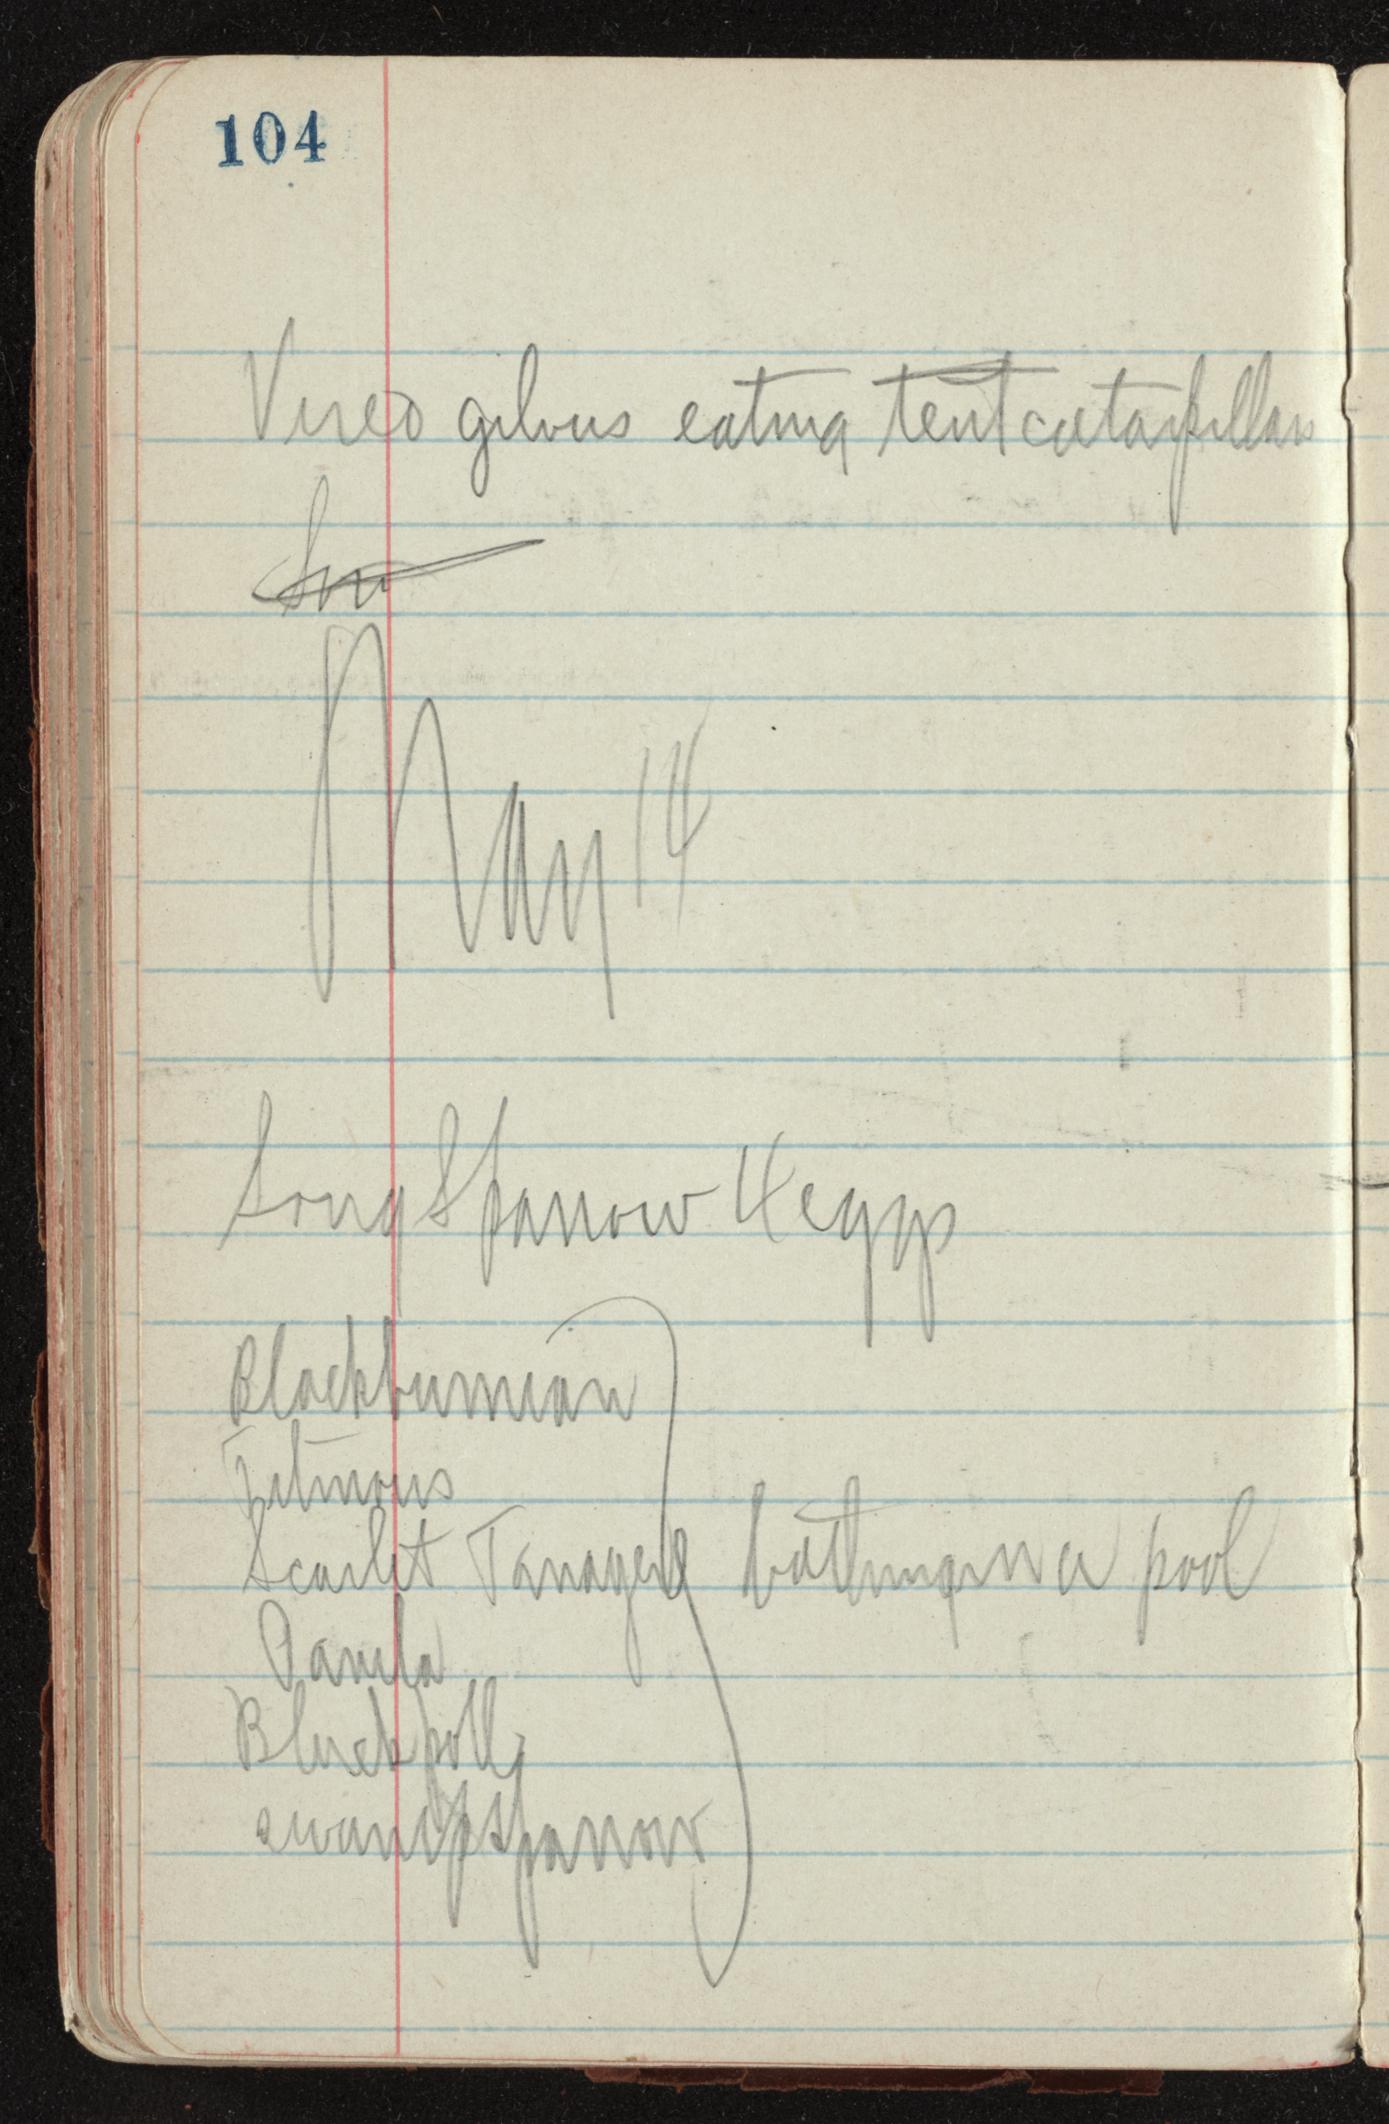 104
Vireo gilvus eating tent catarpillars
Son
May 14
Song Sparrow 4 eggs
Blackburnian
Titmous
Scarlet Tanager bathing in a pool
Parula
Blackpoll
swamp sparrow